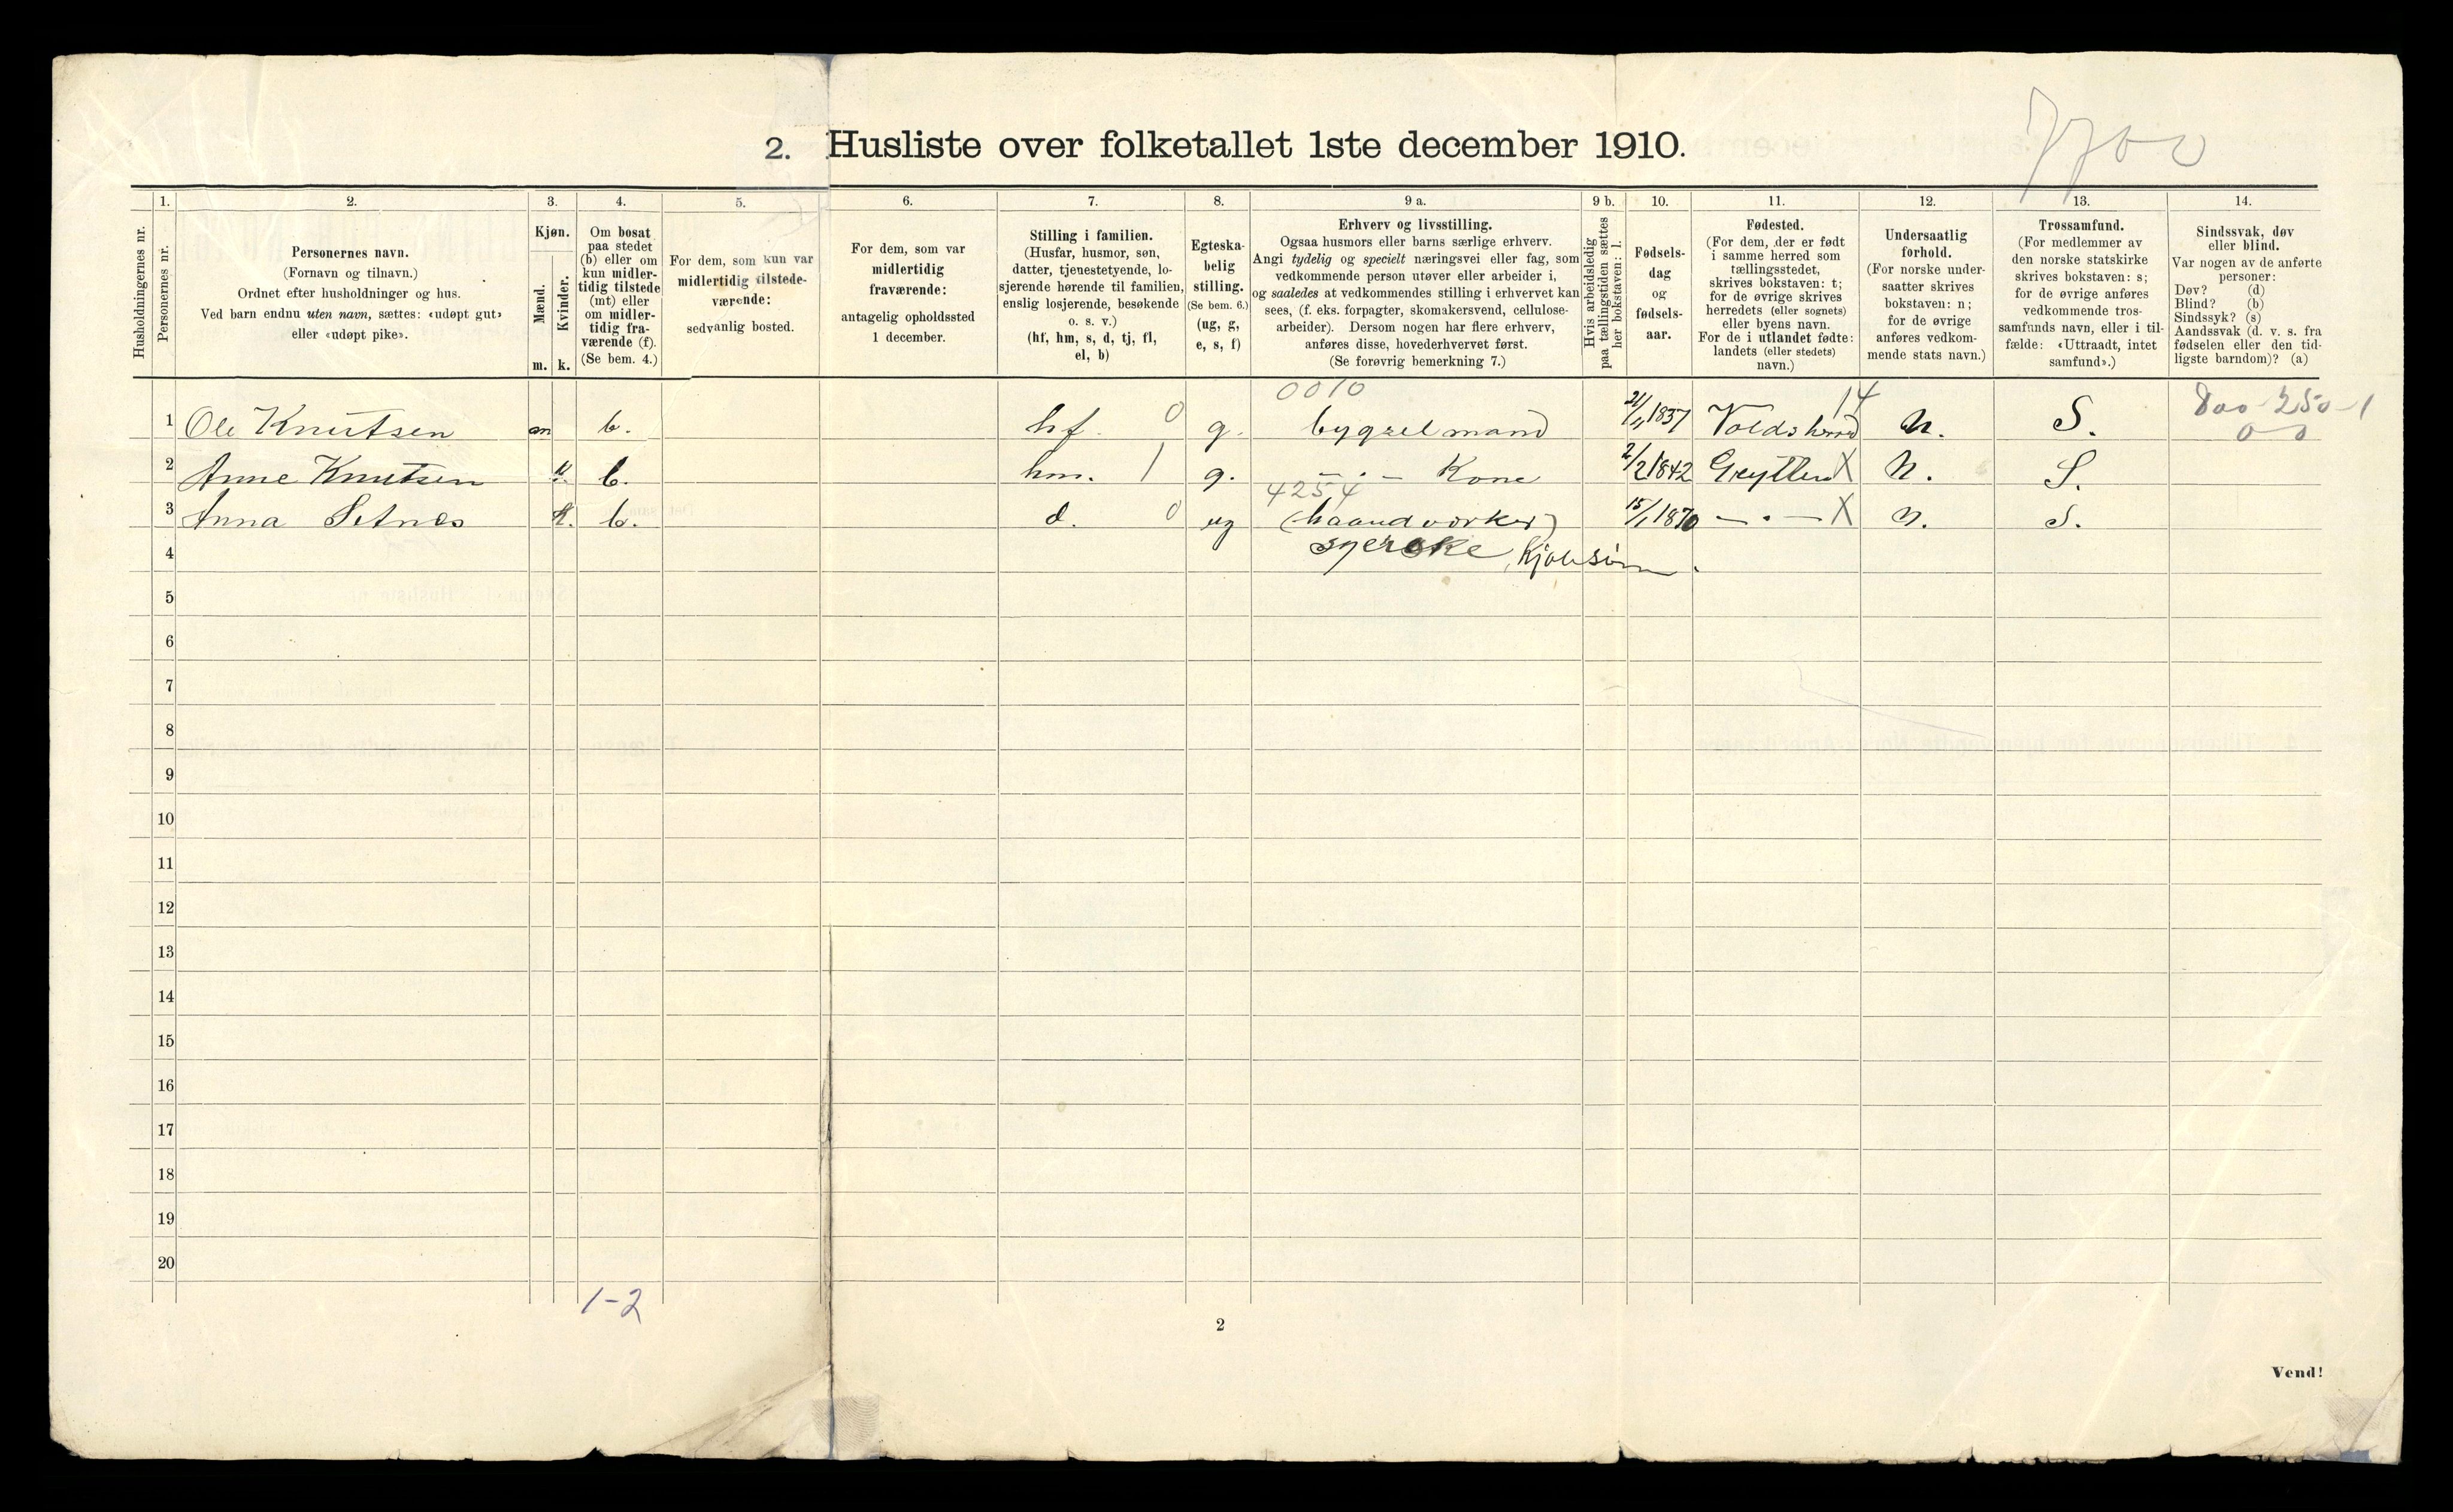 7700
2. Husliste over folketallet 1ste december 1910.
Husholdningernes nr.
1.
Personernes nr.
2.
Personernes navn.
(Fornavn og tilnavn.)
Ordnet efter husholdninger og hus.
Ved barn endnu uten navn, sættes: «udøpt gut»
eller «udøpt pike».
3.
Kjøn.
Mænd.
m.
Kvinder.
k.
4.
Om bosat
paa stedet
(b) eller om
kun midler-
tidig tilstede
(mt) eller
om midler-
tidig fra-
værende (f).
(Se bem. 4.)
5.
For dem, som kun var
midlertidig tilstede-
værende:
sedvanlig bosted.
6.
For dem, som var
midlertidig
fraværende:
antagelig opholdssted
1 december.
7.
Stilling i familien.
(Husfar, husmor, søn,
datter, tjenestetyende, lo-
sjerende hørende til familien,
enslig losjerende, besøkende
o. s. v.)
(hf, hm, s, d, tj, fl,
el, b)
8.
Egteska-
belig
stilling.
(Se bem. 6.)
(ug, g,
e, s, f)
9 a.
Erhverv og livsstilling.
Ogsaa husmors eller barns særlige erhverv.
Angi tydelig og specielt næringsvei eller fag, som
vedkommende person utøver eller arbeider i,
og saaledes at vedkommendes stilling i erhvervet kan
sees, (f. eks. forpagter, skomakersvend, cellulose-
arbeider). Dersom nogen har flere erhverv,
anføres disse, hovederhvervet først.
(Se forøvrig bemerkning 7.)
9 b.
Hvis arbeidsledig
paa tællingstiden sættes
her bokstaven: l.
10.
Fødsels-
dag
og
fødsels-
aar.
11.
Fødested.
(For dem, der er født
i samme herred som
tællingsstedet,
skrives bokstaven: t;
for de øvrige skrives
herredets (eller sognets)
eller byens navn.
For de i utlandet fødte:
landets (eller stedets)
navn.)
12.
Undersaatlig
forhold.
(For norske under-
saatter skrives
bokstaven: n;
for de øvrige
anføres vedkom-
mende stats navn.)
13.
Trossamfund.
(For medlemmer av
den norske statskirke
skrives bokstaven: s;
for de øvrige anføres
vedkommende tros-
samfunds navn, eller i til-
fælde: «Uttraadt, intet
samfund».)
14.
Sindssvak, døv
eller blind.
Var nogen av de anførte
personer:
Døv? (d)
Blind? (b)
Sindssyk? (s)
Aandssvak (d. v. s. fra
fødselen eller den tid-
ligste barndom)? (a)
0010 14 800-250-1
1 Ole Knutsen m b. hf. 0 g. bygselmand 1837 Voldsherred N. S. 0 0
2 Anne Knutsen k. b. hm. 1 g. – . – Kone 2/2 1842 Grytten X N. S.
4254
3 Anna Setnes k. b. d. 0 ug (haandverker) 15/1 1870 – . – X N. S.
4 syerske, Kjolesøm.
5
6
7
8
9
10
11
12
13
14
15
16
17
18
19
20
1-2
2
Vend!